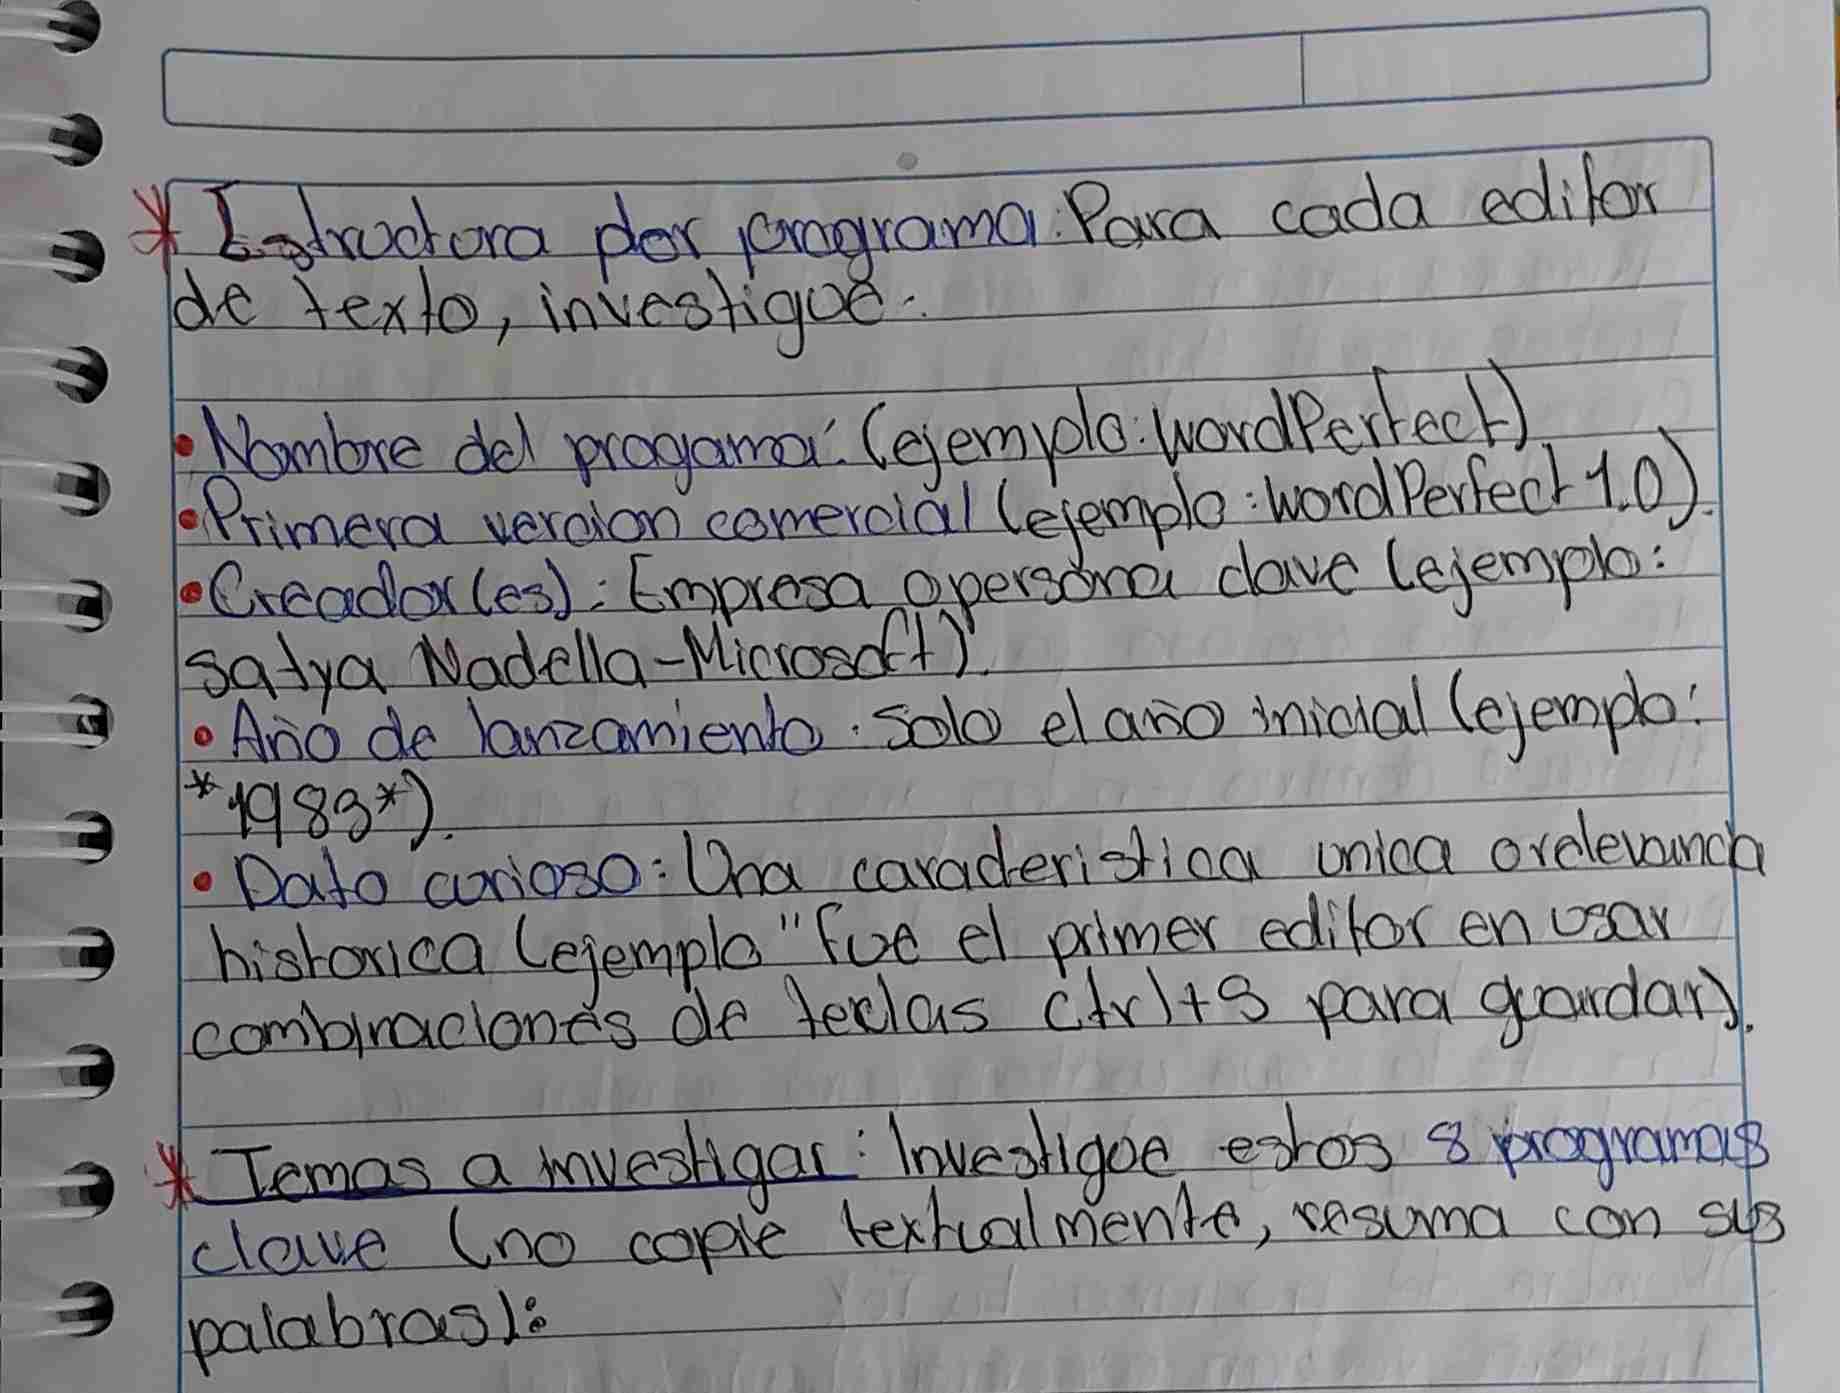 * Estructura por programa: Para cada editor
de texto, investigue:
• Nombre del progama: (ejemplo: WordPerfect)
• Primera vercion comercial (ejemplo: WordPerfect 1.0).
• Creador(es): Empresa o persona clave (ejemplo:
Satya Nadella-Microsoft).
• Año de lanzamiento: Solo el año inicial (ejemplo:
*1983*).
• Dato curioso: Una caracteristica unica o relevancia
historica (ejemplo "fue el primer editor en usar
combinaciones de teclas ctrl+S para guardar).
* Temas a investigar: Investigue estos 8 programas
clave (no copie textualmente, resuma con sus
palabras):